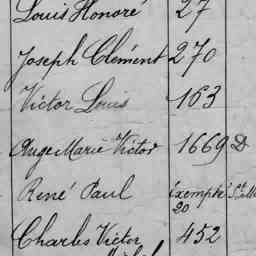 Louis Honoré 27
Joseph Clément 270
Victor Louis 163
Ange Marie Victor 1669 D
René Paul Exempté
20
Charles Victor 452